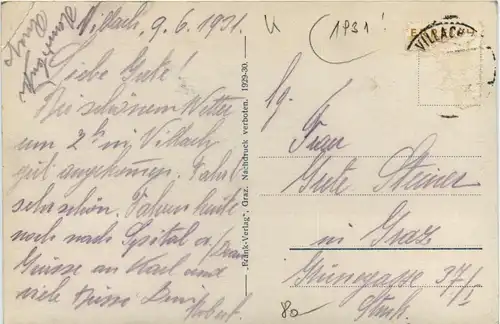 Villach, 9.6.1931.
Liebe Gute!
Bei schönem Wetter
um 2h in Villach
gut angekommen. Fahrt
sehr schön. Fahren heute
noch nach Spittal a/Drau
Grüsse an Karl und
viele Küsse Dein
Robert.
"Frank-Verlag", Graz. Nachdruck verboten. 1929-30.
1931!
VILLACH
Frau
Gute Steiner
in Graz
37/I
80